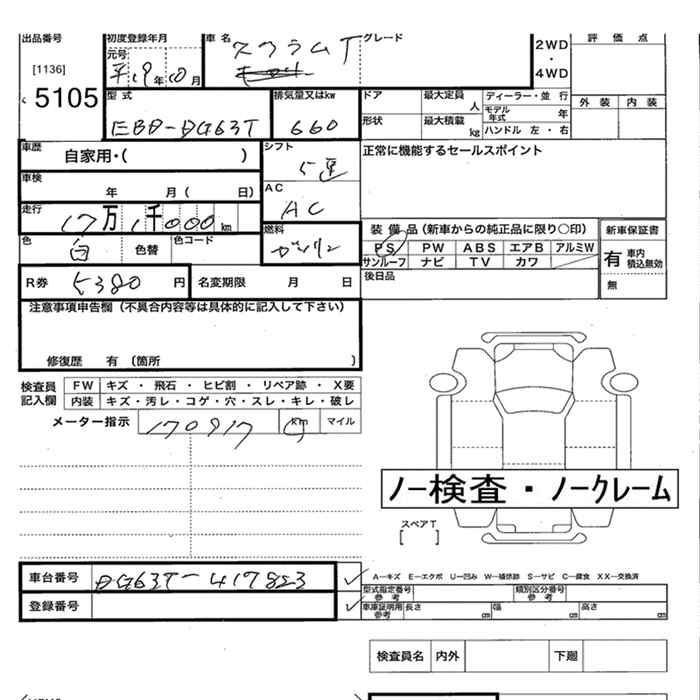 出品番号
[1136]
5105
初度登録年月
元号
平19年10月
車名
スクラムT
グレード
2WD
・
4WD
評価点
外装 内装
型式
EBD-DG63T
排気量又はkw
660
ドア
形状
最大定員
人
最大積載
kg
ディーラー・並行
モデル年式 年
ハンドル 左・右
車歴
自家用・( )
シフト
5速
正常に機能するセールスポイント
車検
年 月( 日)
AC
AC
走行
17万1千000km
燃料
ガソリン
色
白
色替
色コード
装備品(新車からの純正品に限り○印)
PS PW ABS エアB アルミW
サンルーフ ナビ TV カワ
新車保証書
有 車内積込無効
無
後日品
R券 5380円
名変期限 月 日
注意事項申告欄(不具合内容等は具体的に記入して下さい)
修復歴 有 (箇所 )
検査員記入欄
FW キズ・飛石・ヒビ割・リペア跡・X要
内装 キズ・汚レ・コゲ・穴・スレ・キレ・破レ
メーター指示 170917 km マイル
ノー検査・ノークレーム
スペアT
[ ]
車台番号 DG63T-417823
登録番号
A-キズ E-エクボ U-凹み W-補修跡 S-サビ C-腐食 XX-交換済
型式指定番号
参考
類別区分番号
参考
車庫証明用
参考
長さ cm 幅 cm 高さ cm
検査員名 内外 下廻